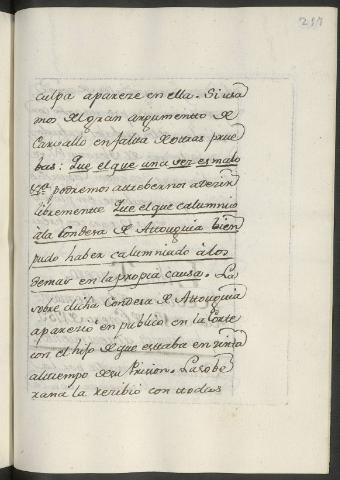 217
culpa apareze en ella. Si usa
mos del gran argumento de
Carvallo en falta de otras prue
bas: Que el que una vez es malo
&ra podremos atrebernos a dezir
libremente Que el que calumnio
à la Condesa de Attouguia bien
pudo haber calumniado à los
demas en la propia causa. La
sobre dicha Condesa de Attouguia
aparezio en publico en la Corte
con el hijo de que estaba en zinta
al tiempo de su Prision. La sobe
rana la rezibio con todas